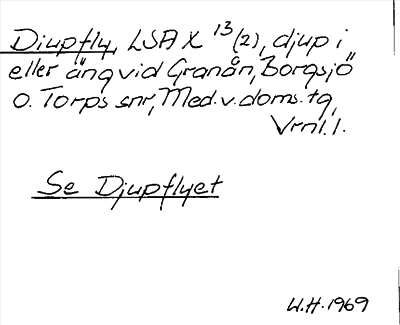 Djupfly, LSA X 13 (2), djup i
eller äng vid Granån, Borgsjö
o. Torps snr, Med. v. doms. tg,
Vrml. l.
Se Djupflyet
W.H. 1969